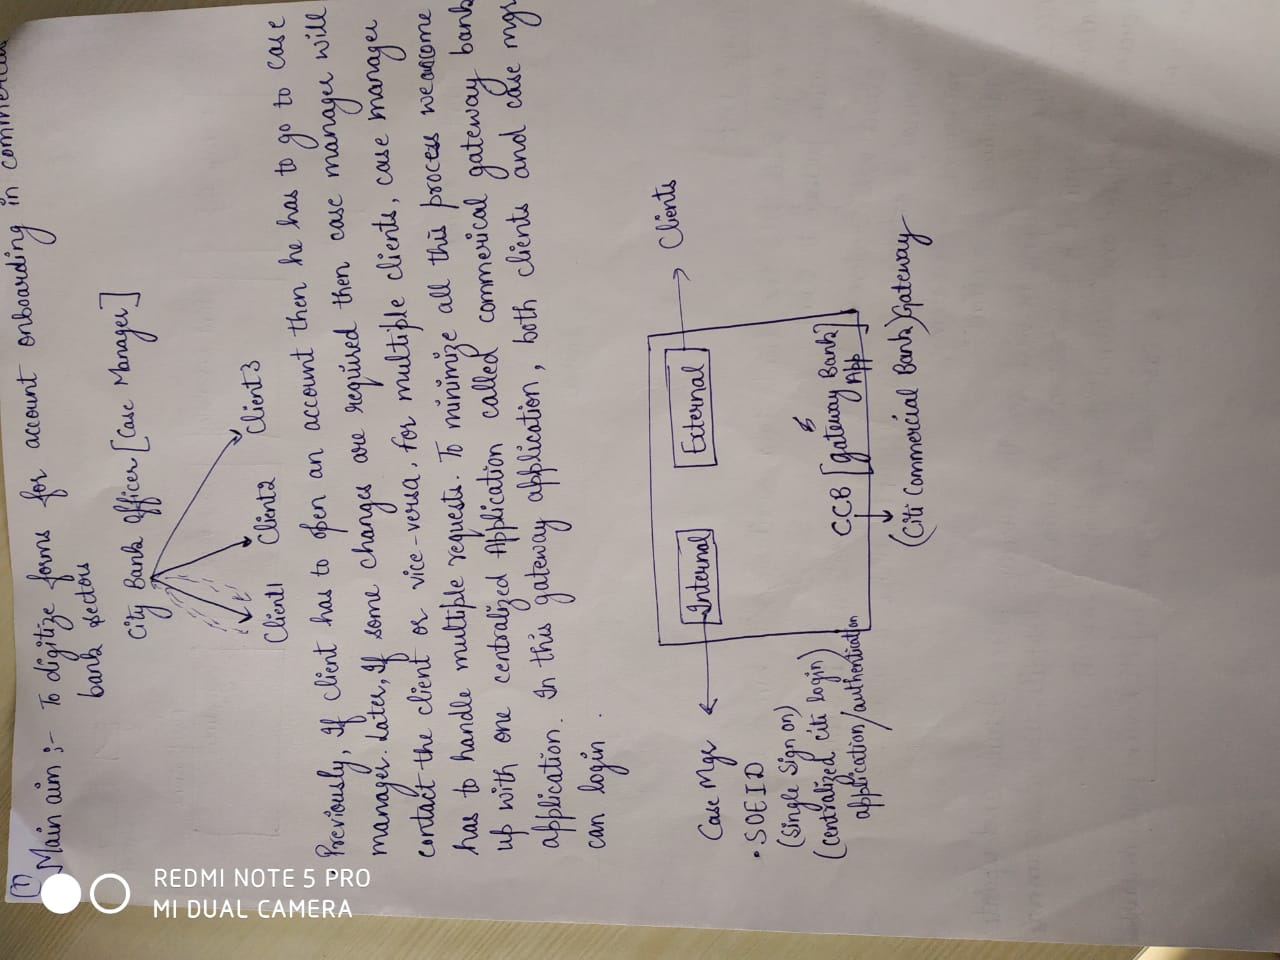 (1)
Main aim :- To digitize forms for account onboarding in commercial
bank sectors
City Bank Officer [Case Manager]
Client1 Client2 Client3
• Previously, If client has to open an account then he has to go to case
manager. Later, If some changes are required then case manager will
contact the client or vice-versa. For multiple clients, case manager
has to handle multiple requests. To minimize all this process we come
up with one centralized Application called commerical gateway bank
application. In this gateway application, both clients and case mgr
can login.
Case Mgr Internal External Clients
• SOEID
(Single Sign on)
(centralized citi login
application/authentication)
CCB [gateway Bank]
App
(Citi Commercial Bank) Gateway
REDMI NOTE 5 PRO
MI DUAL CAMERA